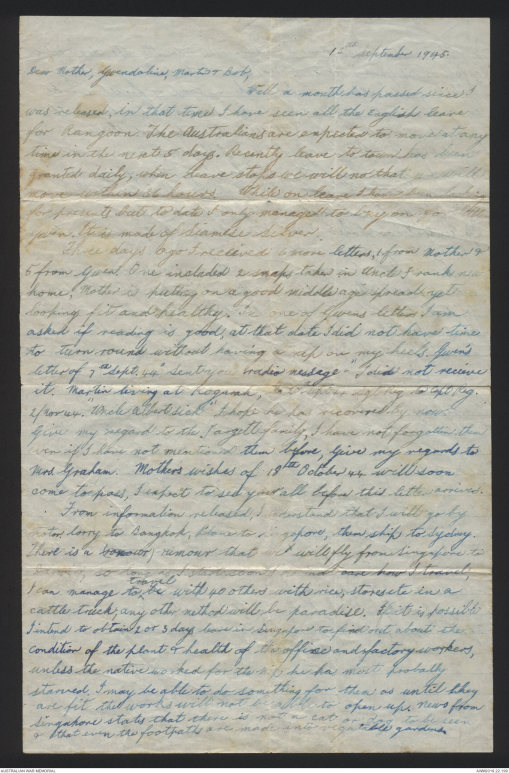 15th September 1945
Dear Mother, Gwendoline, Martin & Bob,
Well a month has passed since I
was released, in that time I have seen all the English leave
for Rangoon. The Australians are expected to move at any
time in the next 5 days. Recently leave to town has been
granted daily, when leave stops we will no that we will
move within 36 hours. Whilst on leave I have been looking
for presents but to date I only managed to buy one for
Gwen. It is made of Siamese Silver.
Three days ago I received 6 more letters, 1 from Mother &
5 from Gwen. One included 2 snaps taken in Uncle Franks new
home, Mother is putting on a good middle age spread yet
looking fit and healthy. In one of Gwens letters I am
asked if reading is good, at that date I did not have time
to turn round without having a nip on my heels. Gwen's
letter of 7th Sept. 44 "sent you radio message" I did not receive
it. Martin living at Kogarah,
2/Nov 44. "Uncle Albert sick" I hope he has recovered by now.
Give my regard to the family, I have not forgotten them
even if I have not mentioned them before, Give my regards to
Mrs. Graham. Mothers wishes of 18th October 44 will soon
come to pass, I expect to see you all before this letter arrives.
From information released, I understand that I will go by
motor lorry to Bangkok, plane to Singapore, then ship to Sydney.
There is a rumour that we will fly from Singapore to
how I travel,
I can manage to travel with 40 others with rice, stores etc in a
cattle truck, any other method will be paradise. If it is possible
I intend to obtain 2 or 3 days leave in Singapore to find out about the
condition of the plant & health of the office and factory workers,
unless the native worked for the he has most probably
starved, I may be able to do something for them as until they
are fit the works will not be able to open up. News from
Singapore states that there is not a cat or dog to be seen
& that even the footpaths are made into vegetable gardens.
AUSTRALIAN WAR MEMORIAL